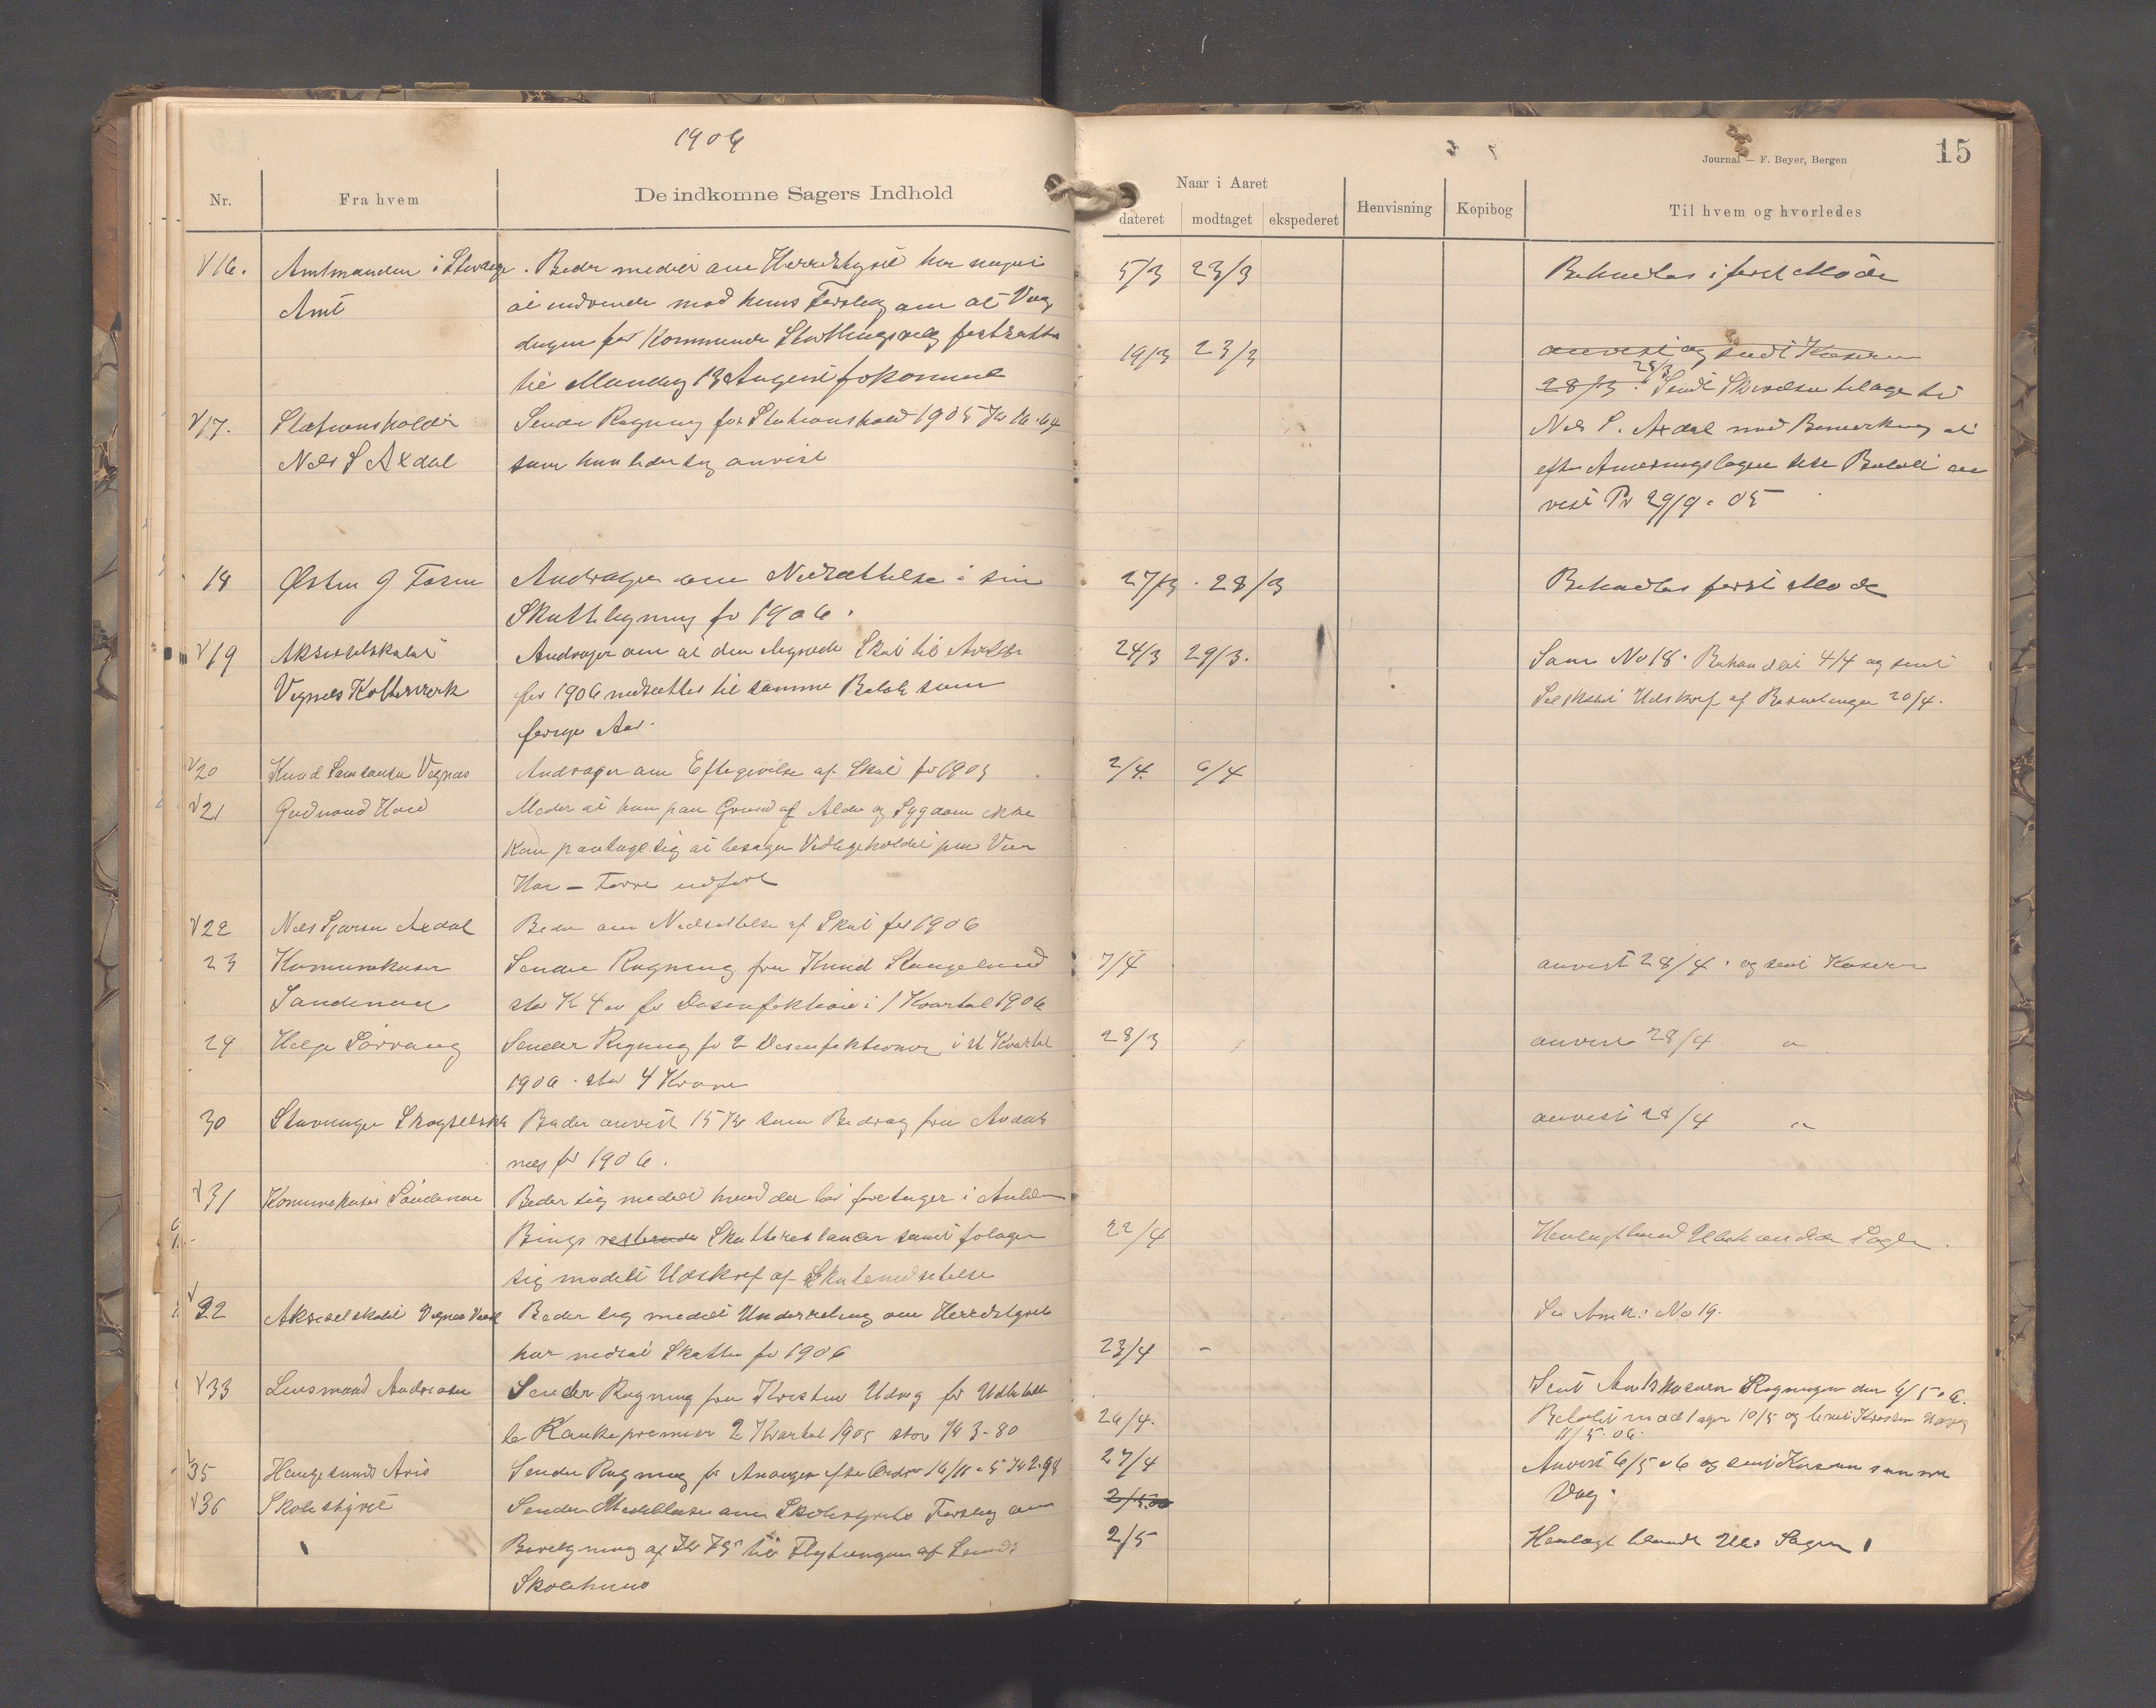 1906
Nr.
Fra hvem
De indkomne Sagers Indhold
V 16.
Amtmanden i Stavanger
Amt
Beder meddelt om Herredstyret har noget
at indvende mod hans Forslag om at Valg
dagen for Kommende Storthingsvalg fastsættes
til Mandag 13 August
V 17.
Stationsholder
Nels S Axdal
Sender Regning for Stationshold 1905 Kr 16.64
som han beder sig anvist
18
Østen J Tosen
Andrager om Nedsættelse i sin
Skatteligning for 1906.
V 19
Akseselskabet
Vignes Kobberverk
Andrager om at den Skat til
for 1906 nedsættes til samme Beløb som
forrige Aar.
V 20
Knud Samsonsen Vignes
Andrager om Eftergivelse af Skat for 1905
V 21
Gudmund Hove
Meder at han paa Grund af Alder og Sygdom ikke
kan paatage sig at besørge Vedligeholdet paa Veien
udført
V 22
Nels Axdal
Beder om Nedsættelse af Skat for 1906
23
Kommunekasser
Sandenaa
Sender Regning fra Knud Stangeland
stor K 4 for Desenfektion i 1 Kvartal 1906
24
Helge Sørvaag
Sender Regning for 2 Desenfektioner i 1st Kvartal
1906. stor 4 Kroner
30
Stavanger Skogselskab
Beder anvist 15 Kr som Bedrag fra Avalds
nes for 1906.
V 31
Kommunekasser Sandenaa
Beder sig meddelt hvad der bør foretages i
Bings resterende Skatterestancer samt
sig meddelt Udskrif af Skatenedsettelse
V 32
Akseselskabet Vignes Værk
Beder sig meddelt Underretning om Herredstyret
har nedsat Skatten for 1906
V 33
Lensmand Andreasen
Sender Regning fra Kristen Udveg for Udbetalte
2 Kvartal 1905 stor K 3-80
35
Haugesunds Avis
Sender Regning for Anonser efter Ordre 16/11-5 Kr 2.98
V 36
Skolestyret
Sender Meddelelse om Skolestyrets Forslag om
Bevilgning af Kr 75 til Flytningen af Lunds
Skolehuus
Journal — F. Beyer, Bergen
15
Naar i Aaret
dateret
modtaget
ekspederet
Henvisning
Kopibog
Til hvem og hvorledes
5/3 23/3
Behandles i første Møde
19/3 23/3
anvist og sendt Kaseren
28/3. 28/3 Sendt Skrivelsen tilbage til
Nels S. Axdal med Bemerkning at
efter Anvisningslogen dette Beløb an
vist Pr 29/9. 05
27/3. 28/3
Behandles første Møde
24/3 29/3.
Sam No 18. Behandlet 4/4 og sent
Selskabet Udskrif af Beslutningen 20/4.
2/4. 6/4
7/4
anvist 28/4. og sent Kasern
28/3
anvist 28/4 "
anvist 28/4 "
22/4
Henlagt blandt Ubehandlede Sager.
Se Anm: No 19.
23/4 -
Sent Amtskasern Regningen den 4/5 06.
26/4.
Beløbet modtaget 10/5 og sent Kristen Udveg
11/5. 06.
27/4
Anvist 6/5 06 og sent Kaseren samme
Dag.
2/5.06
2/5
Henlagt blandt Ub. Sager